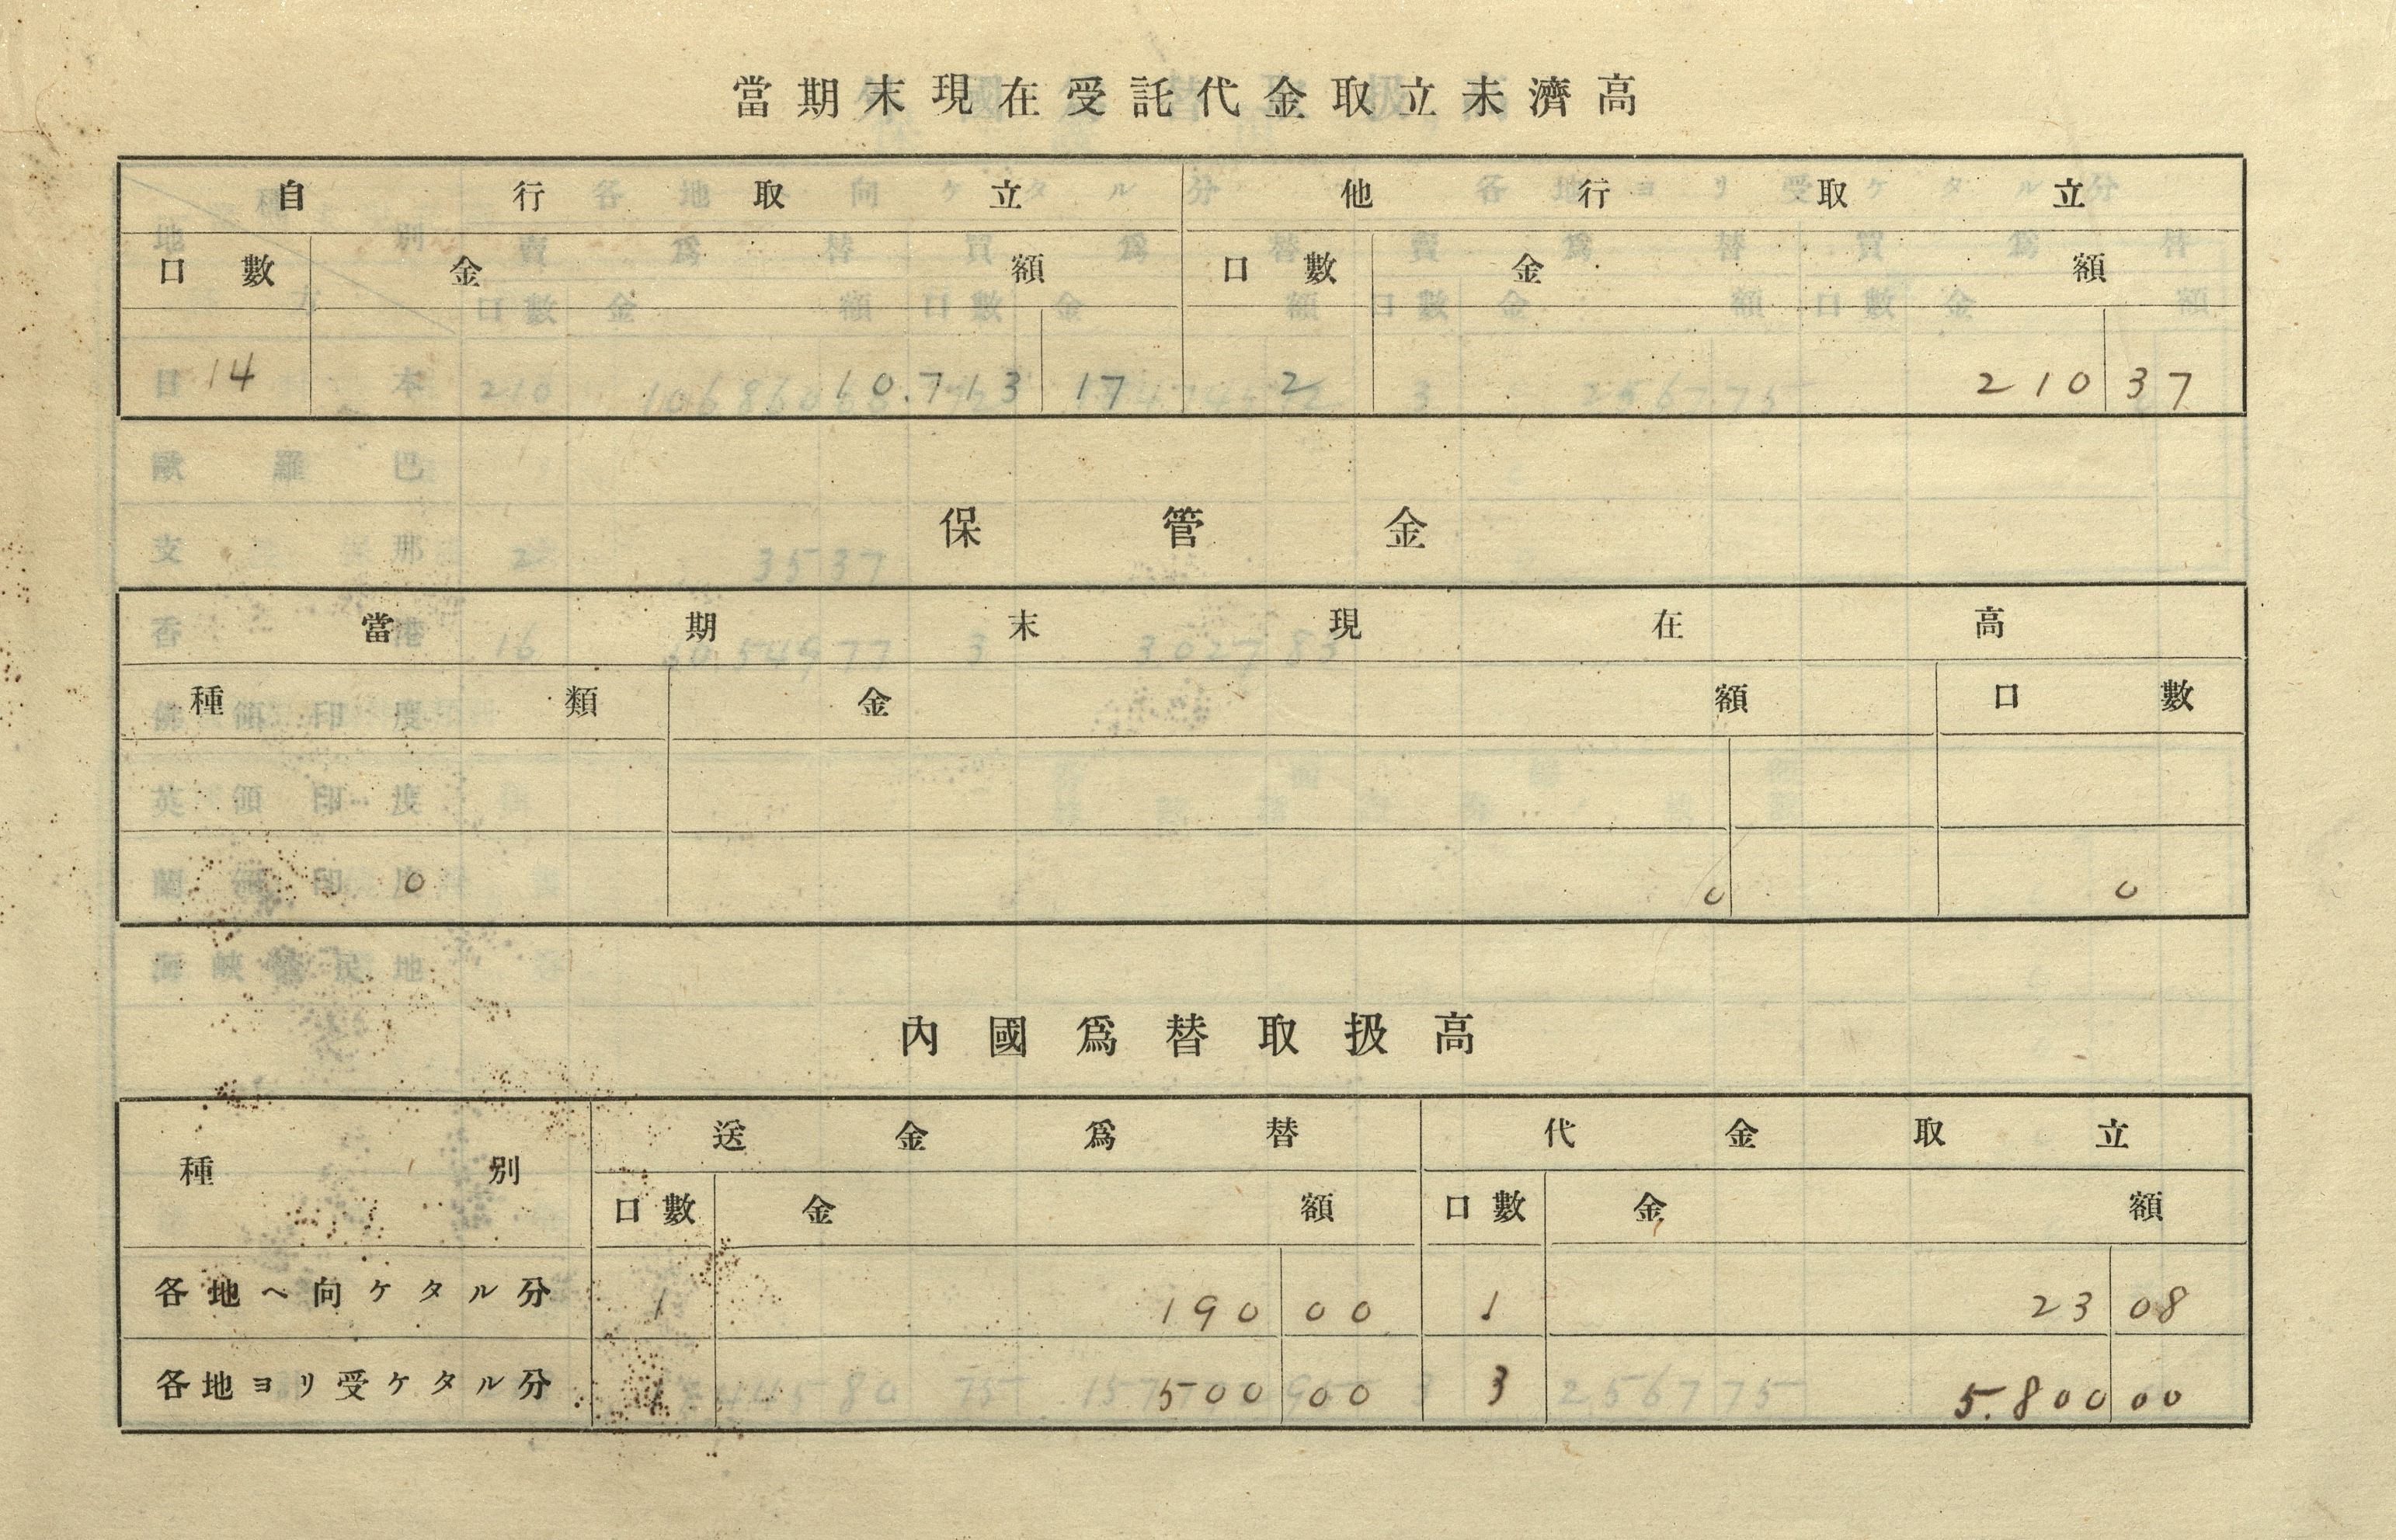 當期末現在受託代金取立未濟高
自行取立 他行取立
口數 金額 口數 金額
14 10.713 17 2 210 37
保管金
當期末現在高
種類 金額 口數
0 0 0
內國爲替取扱高
種別 送金爲替 代金取立
口數 金額 口數 金額
各地ヘ向ケタル分 1 190 00 1 23 08
各地ヨリ受ケタル分 1 500 00 3 5.800 00